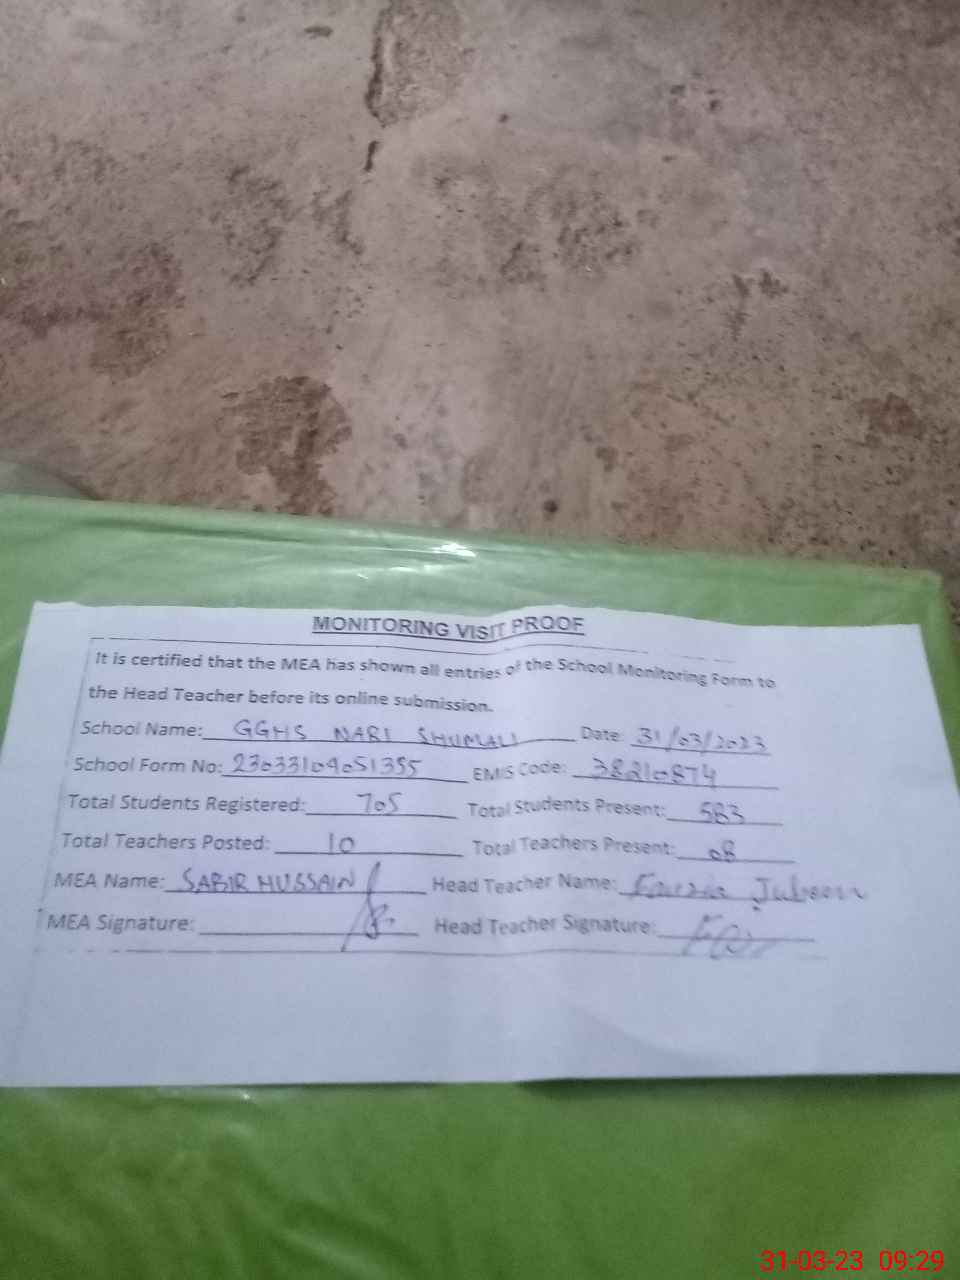 MONITORING VISIT PROOF
It is certified that the MEA has shown all entries of the School Monitoring Form to
the Head Teacher before its online submission.
School Name: GGHS NARI SHUMALI Date: 31/03/2023
School Form No: 23033109051355 EMIS Code: 38210874
Total Students Registered: 705 Total Students Present: 583
Total Teachers Posted: 10 Total Teachers Present: 08
MEA Name: SABIR HUSSAIN Head Teacher Name: Fauzia Jabeen
MEA Signature: Head Teacher Signature:
31-03-23 09:29